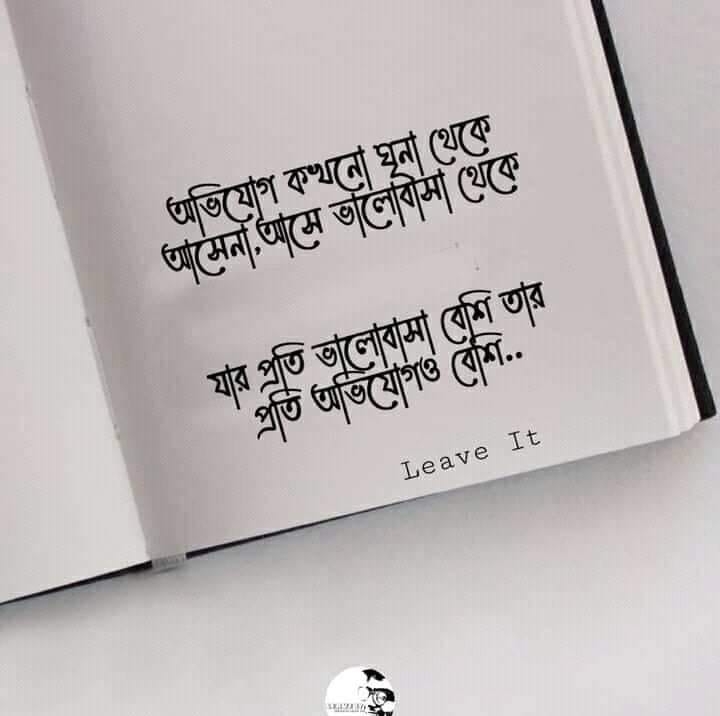 অভিযোগ কখনো ঘৃনা থেকে
আসেনা,আসে ভালোবাসা থেকে
যার প্রতি ভালোবাসা বেশি তার
প্রতি অভিযোগও বেশি..
Leave It